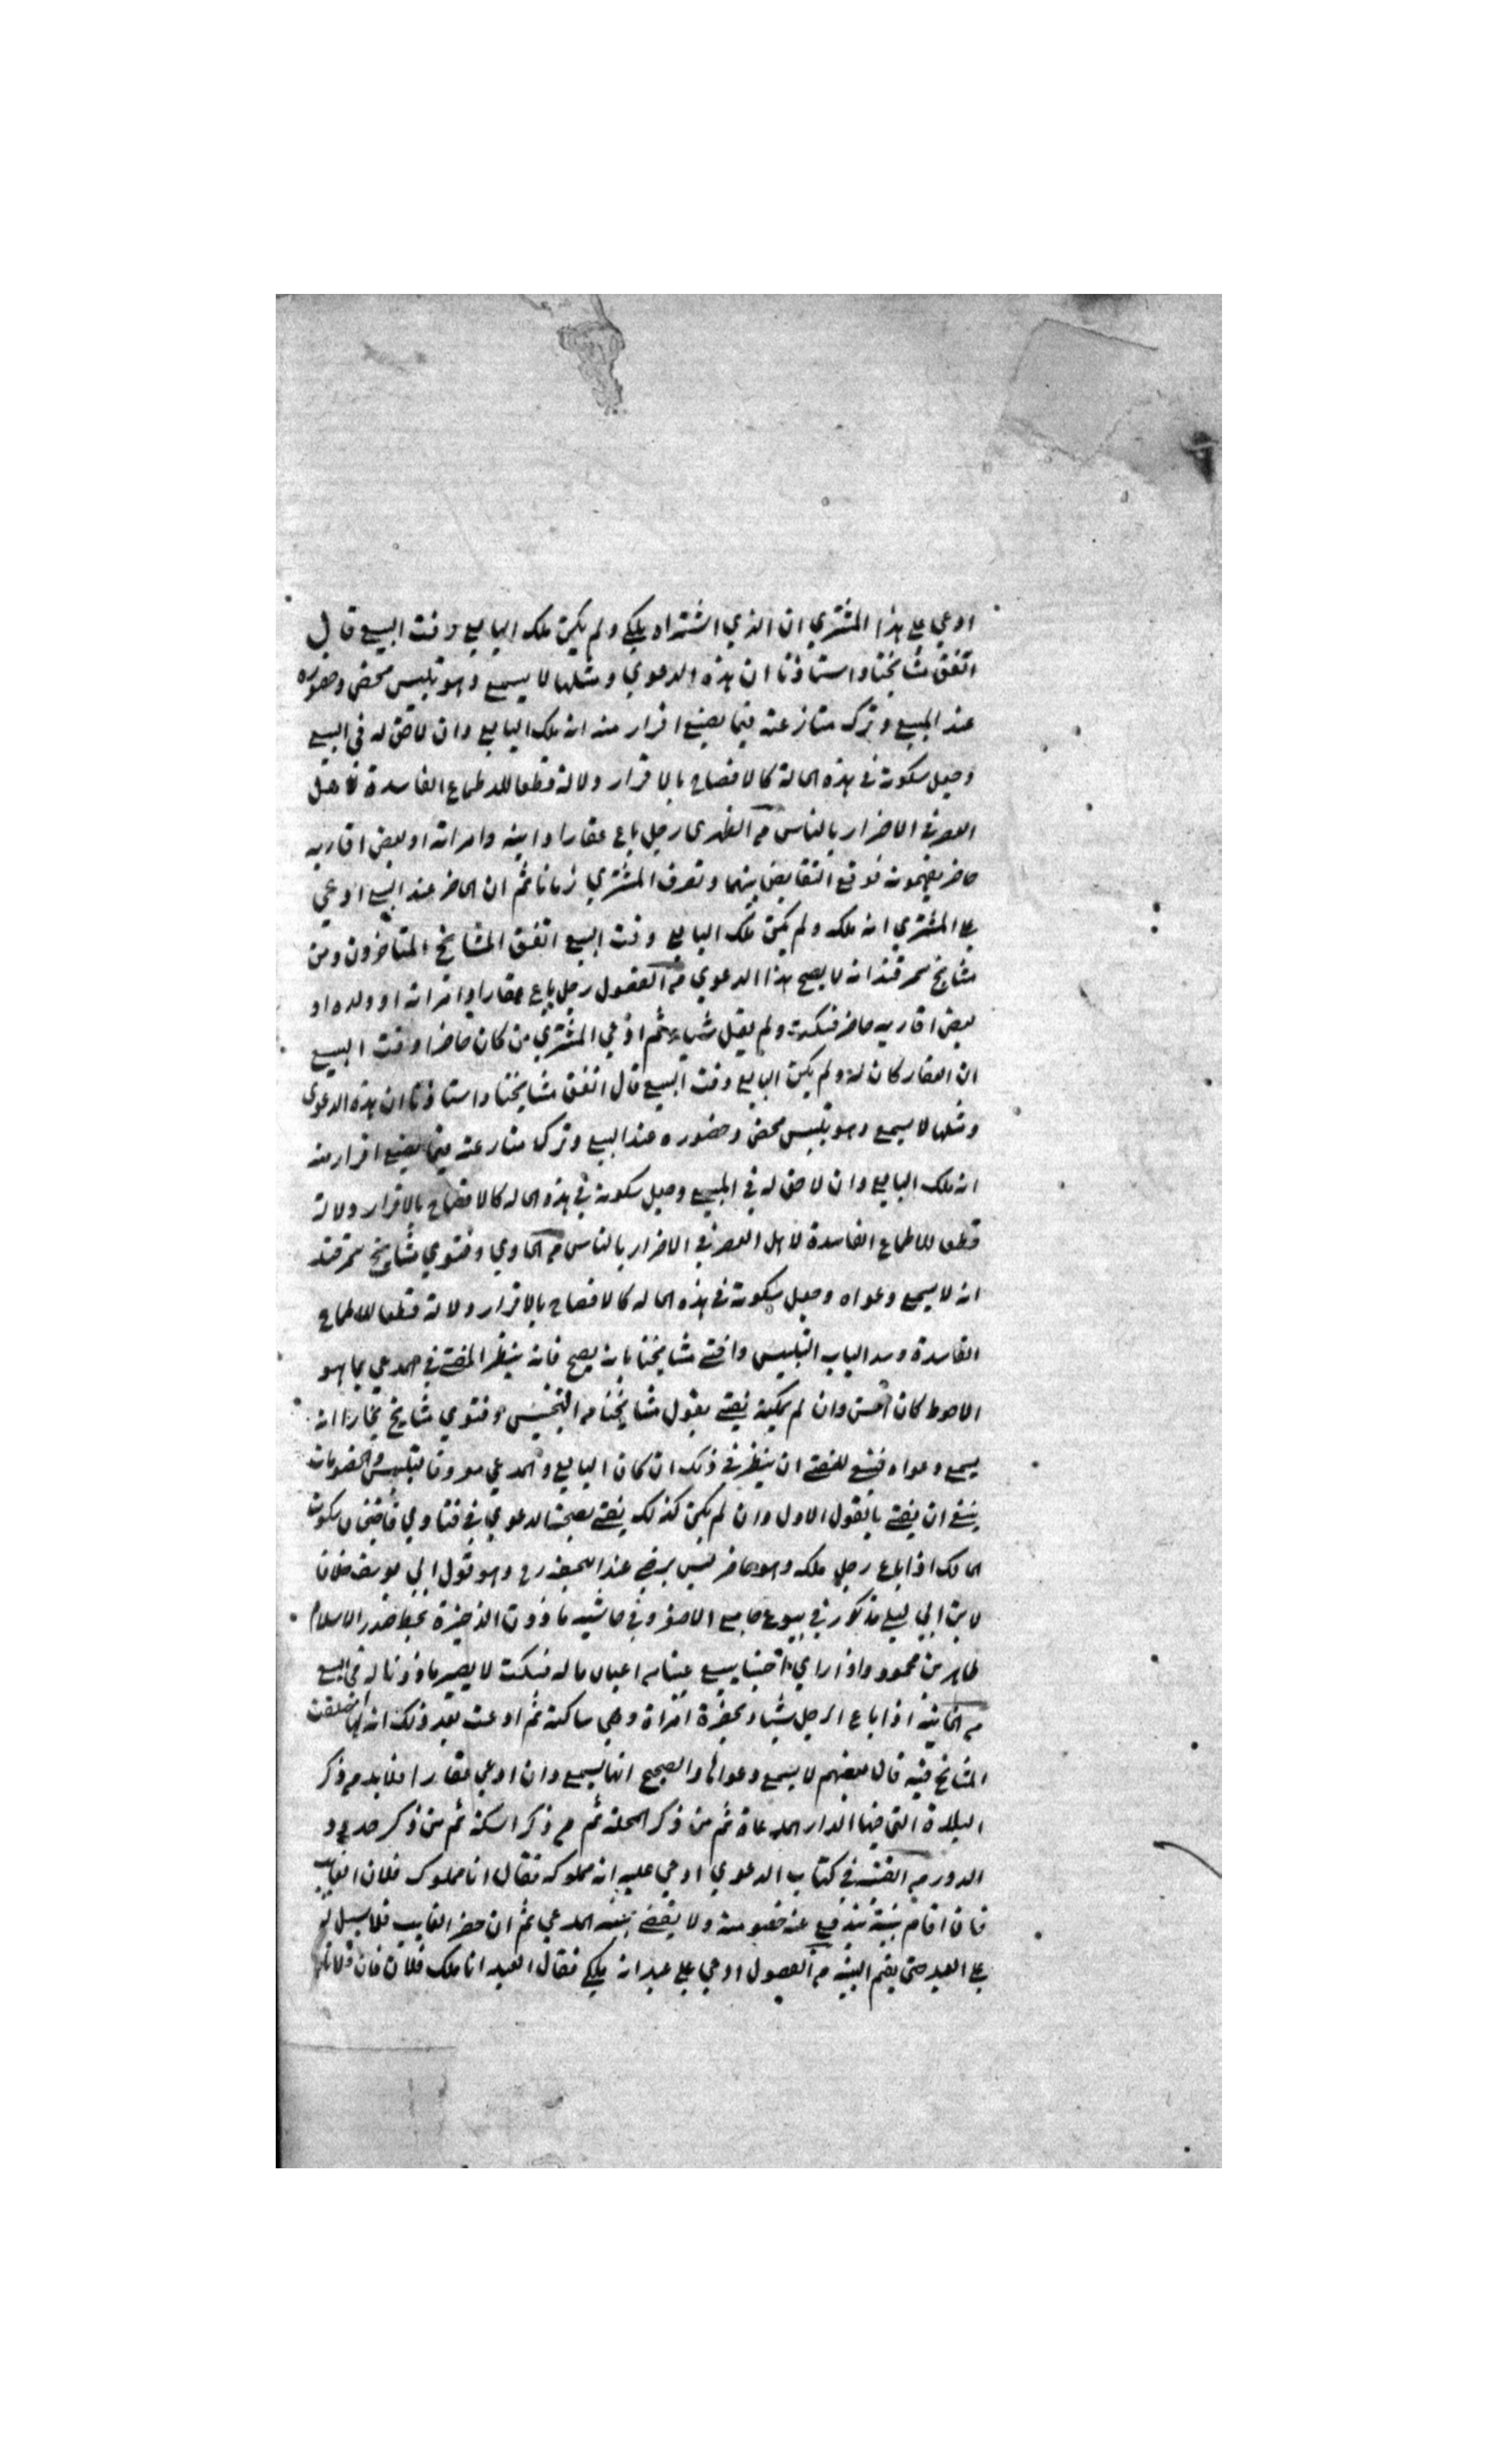 ادعي علي هذا المشتري ان الذي اشتراه ملكي ولم يكن ملك البايع وقت البيع قال
اتفق مشايخنا واستاذنا ان هذه الدعوي ومثلها لا يسمع وهو تلبيس محض وحضوره
عند البيع وترك منازعته فيما يصنع اقرار منه انه ملك البايع وان لا حق له في البيع
وجعل سكوته في هذه الحالة كالافصاح بالاقرار دلالة قطعا للاطماع الفاسدة لاهل
العصر في الاضرار بالناس من الظهيري رجل باع عقارا وابنه وامراته او بعض اقاربه
حاضر يفهمونه فوقع التقابض بينهما وتصرف المشتري زمانا ثم ان الحاضر عند البيع ادعي
علي المشتري انه ملكه ولم يكن ملك البايع وقت البيع اتفق المشايخ المتاخرون ومن
مشايخ سمرقند انه لا يصح هذا الدعوي من الفصول رجل باع عقارا وامراته او ولده او
بعض اقاربه حاضر فسكت ولم يقل شياء ثم ادعي المشتري من كان حاضرا وقت البيع
ان العقار كان له ولم يكن البايع وقت البيع قال اتفق مشايخنا واستاذنا ان هذه الدعوي
ومثلها لا يسمع وهو تلبيس محض وحضوره عند البيع وترك منازعته فيما يصنع اقرار منه
انه ملك البايع وان لا حق له في المبيع وجعل سكوته في هذه الحاله كالافصاح بالاقرار دلالة
قطعا للاطماع الفاسدة لاهل العصر في الاضرار بالناس من الحاوي وفتوي مشايخ سمرقند
انه لا يسمع دعواه وجعل سكوته في هذه الحاله كالافصاح بالاقرار دلالة قطعا للاطماع
الفاسدة وسد الباب التلبيس وافتي مشايخنا بانه يصح فانه ينظر المفتي في المدعي بما هو
الاحوط كان احسن وان لم يمكنه يفتي بقول مشايخنا من التجنيس وفتوي مشايخ بخارا انه
يسمع دعواه فينبغي للمفتي ان ينظر في ذلك ان كان البايع والمدعي معروفا بتلبيس والخصومات
ينبغي ان يفتي بالقول الاول وان لم يكن كذلك يفتي بصحة الدعوي في فتاوي قاضيخان سكوت
المالك اذا باع رجل ملكه وهو حاضر ليس برضي عند ابي حنيفه رح وهو قول ابي يوسف خلافا
لابن ابي ليلي مذكور في بيوع جامع الاصغر وفي حاشيه ماذون الذخيرة بخط صدر الاسلام
طاهر بن محمود واذا راي اجنبيا يبيع عينا من اعيان ماله فسكت لا يصير ماذونا له في البيع
من الخانيه اذا باع الرجل شياء بحضرة امراة وهي ساكتة ثم ادعت بعد ذلك انه لها اختلفت
المشايخ فيه قال بعضهم لا يسمع دعواها والصحيح انها يسمع وان ادعي عقارا فلا بد من ذكر
البلدة التي فيها الدار المدعاة ثم من ذكر المحلة ثم من ذكر السكة ثم من ذكر حدود
الدور من القنيه في كتاب الدعوي ادعي عليه انه مملوكه فقال انا مملوك فلان الغايب
فان اقام بينة يندفع عنه خصومة ولا يقضي ببينه المدعي ثم ان حضر الغايب فلا سبيل له
علي العبد حتي يقيم البينه من الفصول ادعي علي عبد انه ملكي فقال العبد انا ملك فلان فان